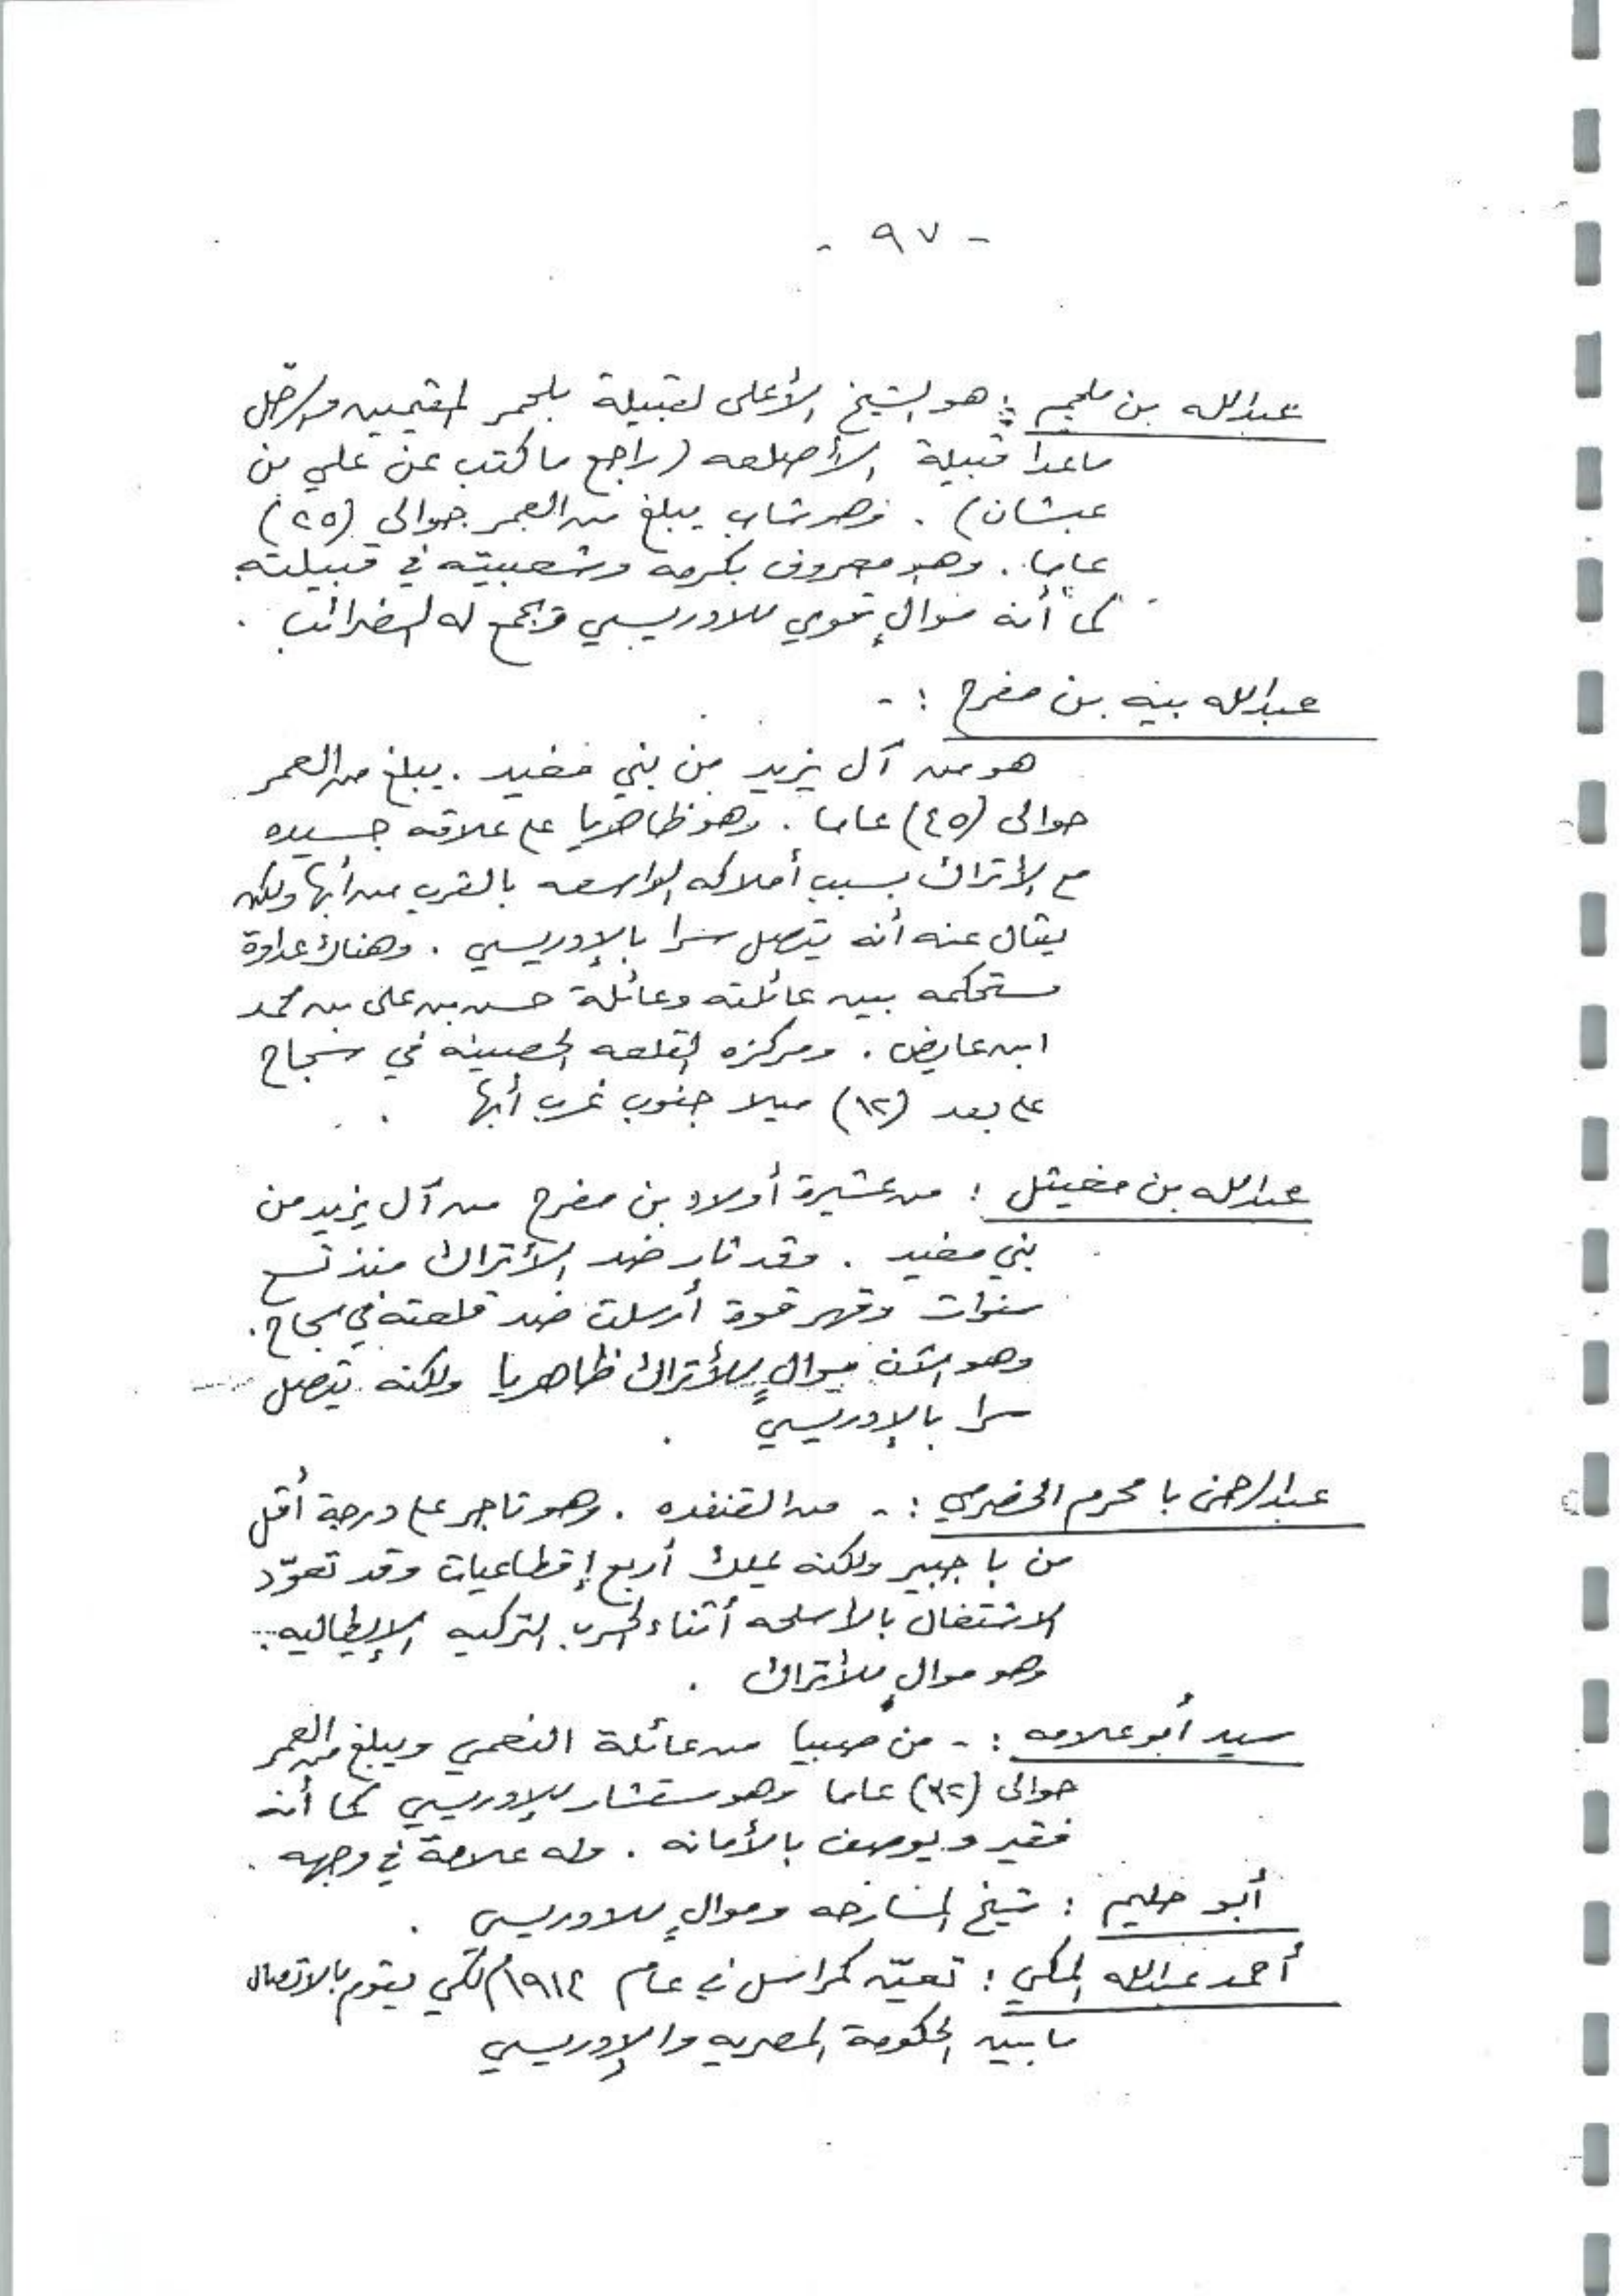 - ٩٧ -
عبدالله بن ملحم : هو الشيخ الأعلى لقبيلة بلحمر المقيمين والرحّل
ماعدا قبيلة الأصلعه (راجع ما كتب عن علي بن
عبشان) . وهو شاب يبلغ من العمر حوالي (٢٥)
عاما . وهو معروف بكرمه وشعبيته في قبيلته
كما أنه موالٍ قوي للادريسي ويجمع له الضرائب .
عبدالله بنيه بن مفرح : -
هو من آل يزيد من بني مغيد . يبلغ من العمر
حوالى (٤٥) عاما . وهو ظاهريا على علاقه جيده
مع الأتراك بسبب أملاكه الواسعه بالقرب من أبها ولكن
يقال عنه أنه يتصل سرا بالإدريسي . وهناك عداوة
مستحكمه بين عائلته وعائلة حسن بن على بن محمد
ابن عايض . ومركزه القلعه الحصينه في سجاح
على بعد (١٢) ميلا جنوب غرب أبها .
عبدالله بن مغيثل : من عشيرة أولاد بن مفرح من آل يزيد من
بني مغيد . وقد ثار ضد الأتراك منذ تسع
سنوات وقهر قوة أرسلت ضد قلعته في سجاح .
وهو الآن موالٍ للأتراك ظاهريا ولكنه يتصل
سرا بالإدريسي .
عبدالرحمن با محرم الحضرمي : - من القنفده . وهو تاجر على درجة أقل
من با جبير ولكنه يملك أربع إقطاعيات وقد تعوّد
الاشتغال بالاسلحه أثناء الحرب التركيه الإيطاليه .
وهو موالٍ للأتراك .
سيد أبو علامه : - من صبيا من عائلة النعمي ويبلغ من العمر
حوالى (٣٢) عاما وهو مستشار للإدريسي كما أنه
فقير ويوصف بالأمانه . وله علامة في وجهه .
أبو حليم : شيخ المنارضه وموالٍ للادريسى .
أحمد عبدالله المكي : تعيّن كمراسل في عام ١٩١٤م لكي يقوم بالاتصال
ما بين الحكومة المصريه والإدريسي